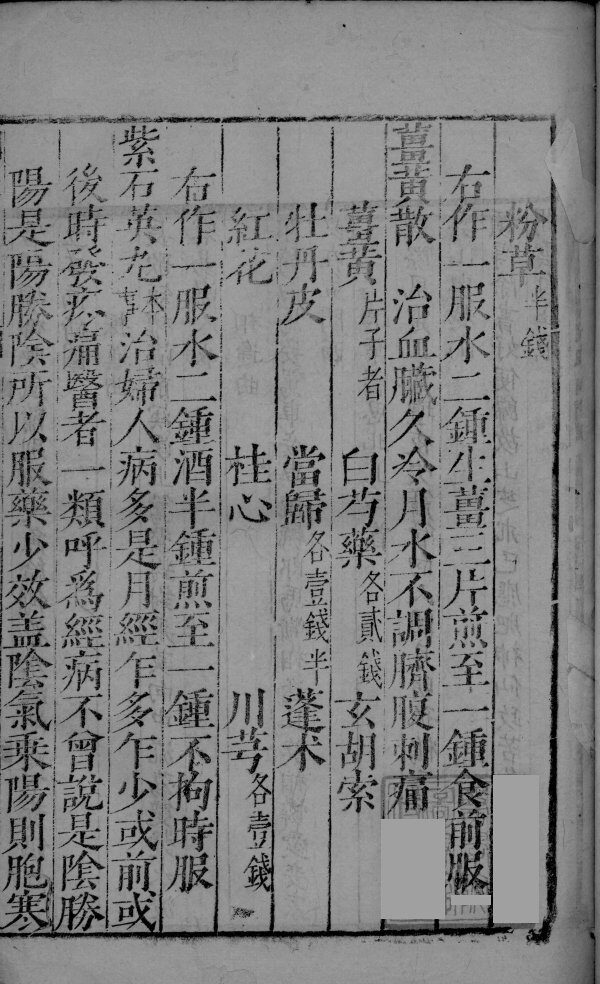 粉草半錢
右作一服水二鍾生薑三片煎至一鍾食前服
薑黃散 治血臟久冷月水不調臍腹刺痛
薑黃片子者 白芍藥各貳錢 玄胡索
牡丹皮 當歸各壹錢半 蓬朮
紅花 桂心 川芎各壹錢
右作一服水二鍾酒半鍾煎至一鍾不拘時服
紫石英丸本事治婦人病多是月經乍多乍少或前或
後時發疼痛醫者一類呼爲經病不曾說是陰勝
陽是陽勝陰所以服藥少效盖陰氣乘陽則胞寒